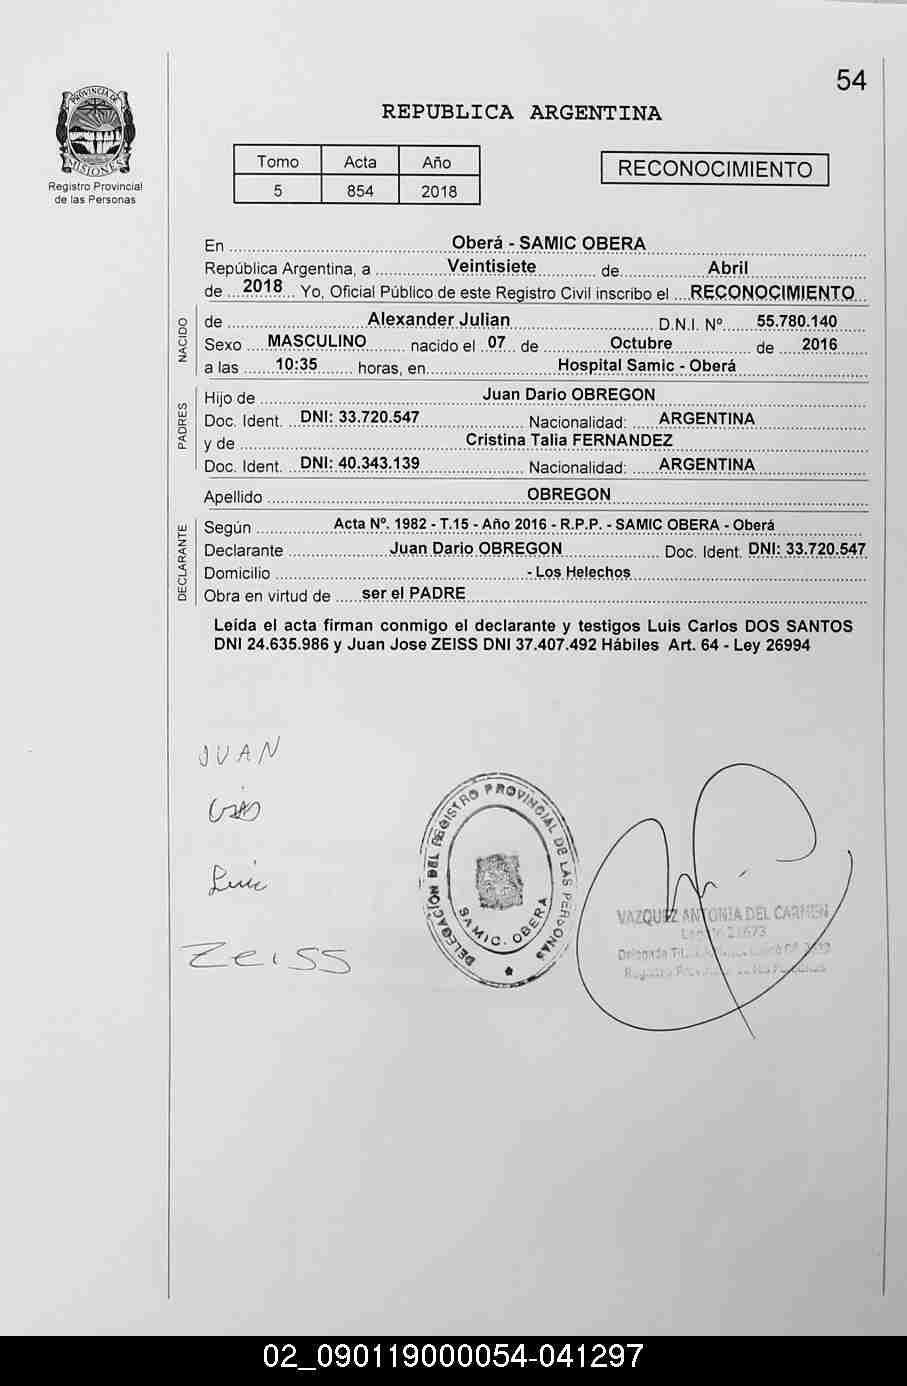 54
PROVINCIA DE
MISIONES
Registro Provincial
de las Personas
REPUBLICA ARGENTINA
Tomo Acta Año
5 854 2018
RECONOCIMIENTO
En Oberá - SAMIC OBERA
República Argentina, a Veintisiete de Abril
de 2018 Yo, Oficial Público de este Registro Civil inscribo el RECONOCIMIENTO
NACIDO
de Alexander Julian D.N.I. Nº 55.780.140
Sexo MASCULINO nacido el 07 de Octubre de 2016
a las 10:35 horas, en Hospital Samic - Oberá
PADRES
Hijo de Juan Dario OBREGON
Doc. Ident. DNI: 33.720.547 Nacionalidad: ARGENTINA
y de Cristina Talia FERNANDEZ
Doc. Ident. DNI: 40.343.139 Nacionalidad: ARGENTINA
Apellido OBREGON
DECLARANTE
Según Acta Nº. 1982 - T.15 - Año 2016 - R.P.P. - SAMIC OBERA - Oberá
Declarante Juan Dario OBREGON Doc. Ident. DNI: 33.720.547
Domicilio - Los Helechos
Obra en virtud de ser el PADRE
Leída el acta firman conmigo el declarante y testigos Luis Carlos DOS SANTOS
DNI 24.635.986 y Juan Jose ZEISS DNI 37.407.492 Hábiles Art. 64 - Ley 26994
JUAN
Luis
Zeiss
DELEGACION DEL REGISTRO PROVINCIAL DE LAS PERSONAS
SAMIC. OBERA
VAZQUEZ ANTONIA DEL CARMEN
02_090119000054-041297